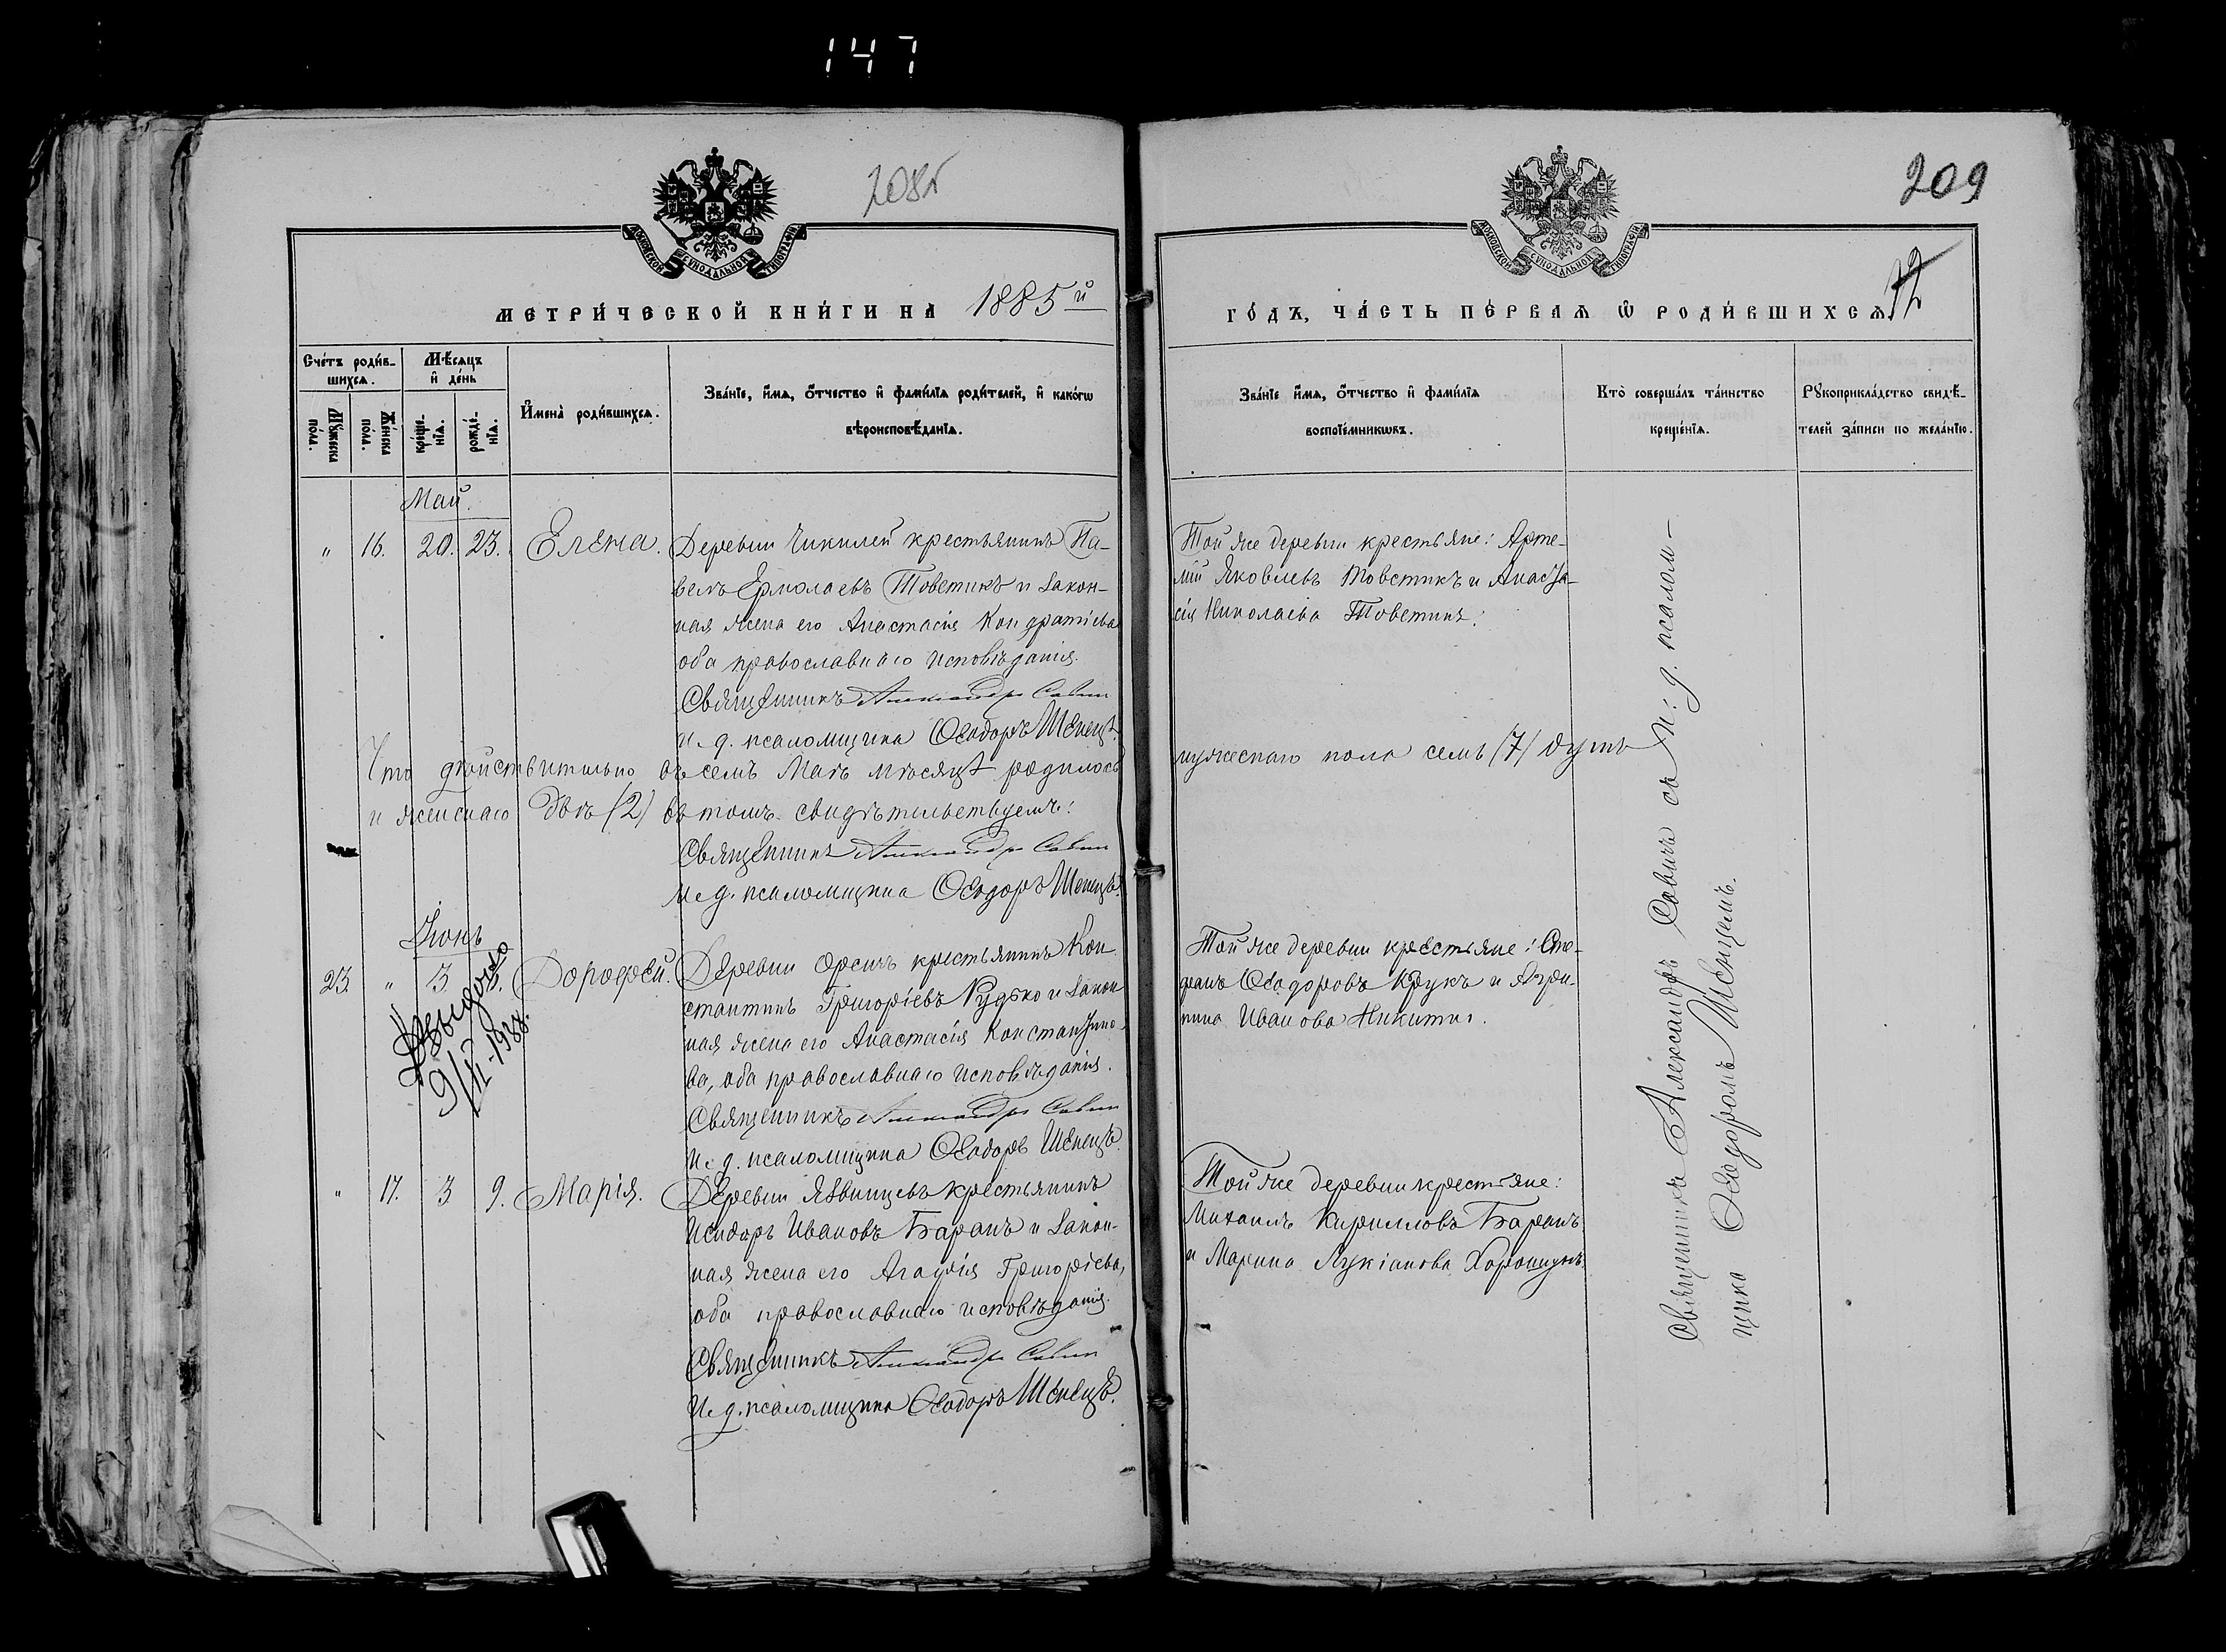 147
208г
209
МОСКОВСКОЙ СѴНОДАЛЬНОЙ ТИПОГРАФІИ
МОСКОВСКОЙ СѴНОДАЛЬНОЙ ТИПОГРАФІИ
72
МЕТРИ́ЧЕСКОЙ КНИ́ГИ НА 1885й
ГО́ДЪ, ЧА́СТЬ ПЕ́РВАѦ Ѽ РОДИ́ВШИХСѦ.
Сче́тъ роди́в-
шихсѧ.
Мꙋ́жеска
пола̀.
Же́нска
пола̀.
Мѣ́сѧцъ
и҆ де́нь
кре́ще-
нїѧ.
рожде́-
нїѧ.
И҆мена̀ роди́вшихсѧ.
Зва́нїе, и҆́мѧ, ѻ҆́тчество и҆ фами́лїѧ роди́телей, и҆ како́гѡ
вѣроисповѣ́данїѧ.
Зва́нїе и҆́мѧ, ѻ҆́тчество и҆ фами́лїѧ
воспрїе́мникѡвъ.
Кто̀ соверша́лъ та́инство
креще́нїѧ.
Рꙋкоприкла́дство свидѣ́-
телей за́писи по жела́нїю.
Май.
" 16. 20. 23. Елена.
Деревни Чикилей крестьянинъ Па-
велъ Ермолаевъ Товстикъ и закон-
ная жена его Анастасія Кондратіева
оба православнаго исповѣданія.
Священникъ Александръ Савич
И. д. псаломщика Ѳеодоръ Шенецъ.
Той же деревни крестьяне: Арте-
мій Яковлевъ Товстикъ и Анаста-
сія Николаева Товстикъ.
Что дѣйствительно въ семъ Маѣ мѣсяцѣ родилось
мужескаго пола семь (7) душъ
и женскаго двѣ (2) въ томъ свидѣтельствуемъ:
Священникъ Александръ Савич
И. д. псаломщика Ѳеодоръ Шенецъ.
Іюнь
23. " 3. Дорофей.
Деревни Оресичъ крестьянинъ Кон-
стантинъ Григоріевъ Рудько и закон-
ная жена его Анастасія Константино-
ва, оба православнаго исповѣданія.
Священникъ Александръ Савич
И. д. псаломщика Ѳеодоръ Шенецъ.
Той же деревни крестьяне: Сте-
фанъ Ѳеодоровъ Крукъ и Агри-
пина Иванова Никитич.
9/II-1938.
" 17. 3 9. Марія.
Деревни Язвинцевъ крестьянинъ
Исидоръ Ивановъ Баранъ и закон-
ная жена его Агафія Григоріева,
оба православнаго исповѣданія.
Священникъ Александръ Савич
И. д. псаломщика Ѳеодоръ Шенецъ.
Той же деревни крестьяне:
Михаилъ Кирилловъ Баранъ
и Марина Лукіанова Хорошунъ.
Священникъ Александръ Савичъ съ И. д. псалом-
щика Ѳеодоромъ Шенцемъ.